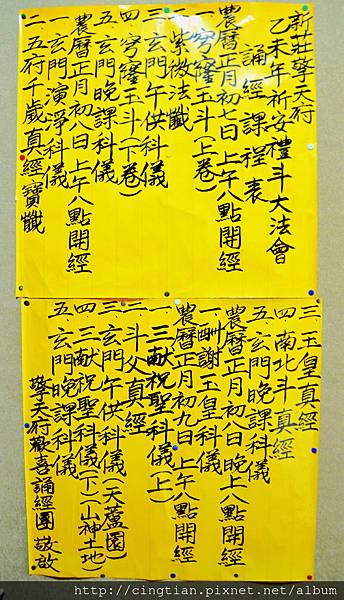 新莊擎天府
乙未年祈安禮斗大法會
誦經課程表
農曆正月初七日上午八點開經
一.穹窿玉斗(上卷)
二.紫微法懺
三.玄門午供科儀
四.穹窿玉斗(下卷)
五.玄門晚課科儀
農曆正月初八日上午八點開經
一.玄門演淨科儀
二.五府千歲真經寶懺
三.玉皇真經
四.南北斗真經
五.玄門晚課科儀
農曆正月初八日晚上八點開經
一.酬謝玉皇科儀
農曆正月初九日上午八點開經
一.三献祝聖科儀(上)
二.斗父真經
三.玄門午供科儀(天蘆園)
四.三献祝聖科儀(下)山神土地
五.玄門晚課科儀
擎天府歡喜誦經團 敬啟
http://cingtian.pixnet.net/album